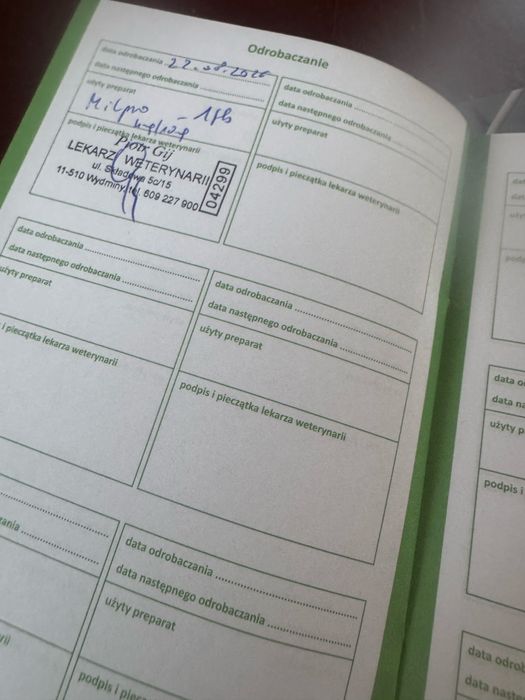 Odrobaczanie
data odrobaczania 22.08.2020
data następnego odrobaczania
użyty preparat
Milpro - 1tb
podpis i pieczątka lekarza weterynarii
Piotr Gij
LEKARZ WETERYNARII
ul. Składowa 5c/15
11-510 Wydminy, tel. 609 227 900
04299
data odrobaczania
data następnego odrobaczania
użyty preparat
podpis i pieczątka lekarza weterynarii
data odrobaczania
data następnego odrobaczania
użyty preparat
i pieczątka lekarza weterynarii
data odrobaczania
data następnego odrobaczania
użyty preparat
podpis i pieczątka lekarza weterynarii
data odrobaczania
data następnego odrobaczania
użyty preparat
podpis i pieczątka lekarza wet
data o
data na
użyty p
podpis i
data odro
data nast